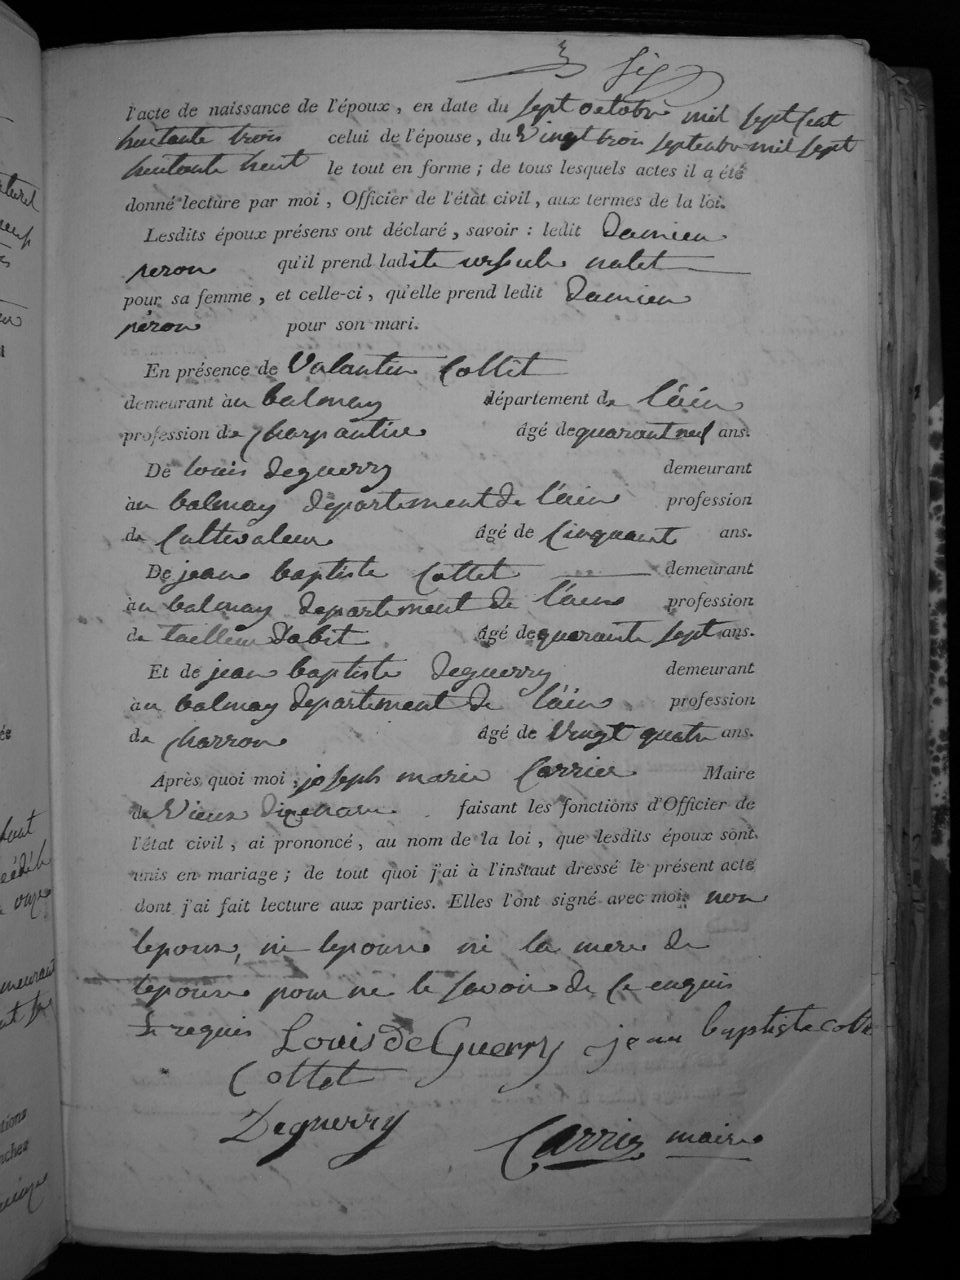 l'acte de naissance de l'époux, en date du sept octobre mil sept Cent
huitante trois celui de l'épouse, du Vingt trois septembre mil sept
huitante huit le tout en forme; de tous lesquels actes il a été
donné lecture par moi, Officier de l'état civil, aux termes de la loi.
Lesdits époux présens ont déclaré, savoir : ledit Damien
peron qu'il prend ladite ursule natet
pour sa femme, et celle-ci, qu'elle prend ledit Damien
péron pour son mari.
En présence de Valantin Collet
demeurant àu balmay département de l'áin
profession de Charpantier âgé de quarant neuf ans.
De louis deguerry demeurant
àu balmay département de l'ain profession
de Cultivateur âgé de Cinquant ans.
De jean baptiste Cottet demeurant
àu balmay departement de l'ain profession
de tailleur d'abit âgé de quarante sept ans.
Et de jean baptiste deguerry demeurant
àu balmay departement de l'áin profession
de charron âgé de Vingt quatre ans.
Après quoi moi, joseph marie Carrier Maire
de Vieux faisant les fonctions d'Officier de
l'état civil, ai prononcé, au nom de la loi, que lesdits époux sont
unis en mariage; de tout quoi j'ai à l'instant dressé le présent acte
dont j'ai fait lecture aux parties. Elles l'ont signé avec moi. non
lepoux, ni lepouse ni la mere de
lepouse pour ne le savoir de Ce enquis
& requis Louis DeGuerry jean baptiste cotte
Cottet
Deguerry Carrier maire